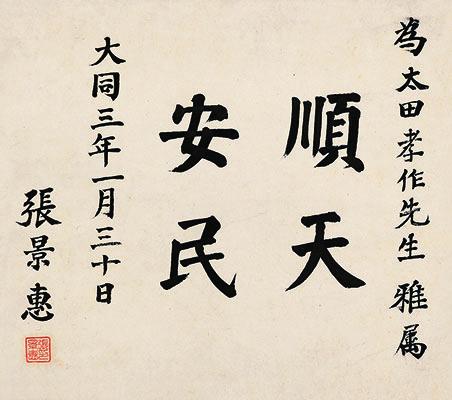 為太田孝作先生 雅属
順天
安民
大同三年一月三十日
張景惠